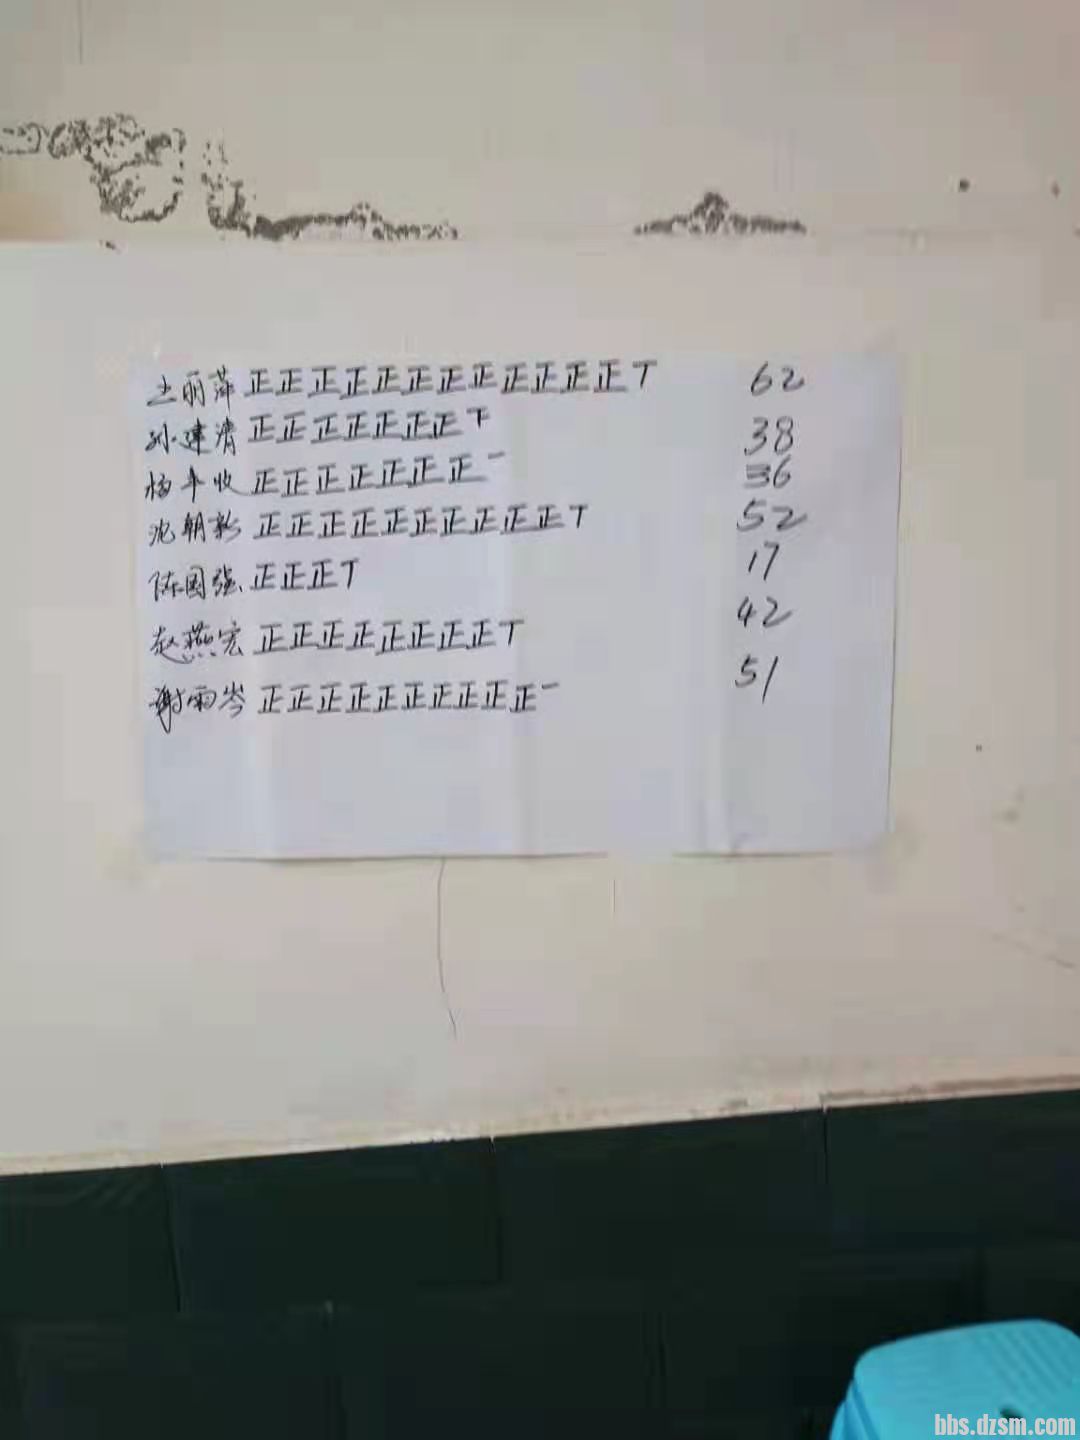 王丽萍 正正正正正正正正正正正正丅 62
孙建清 正正正正正正正下 38
杨丰收 正正正正正正正一 36
沈朝彩 正正正正正正正正正正丅 52
陈国强 正正正丅 17
赵燕宏 正正正正正正正正丅 42
谢雨岑 正正正正正正正正正正一 51
bbs.dzsm.com